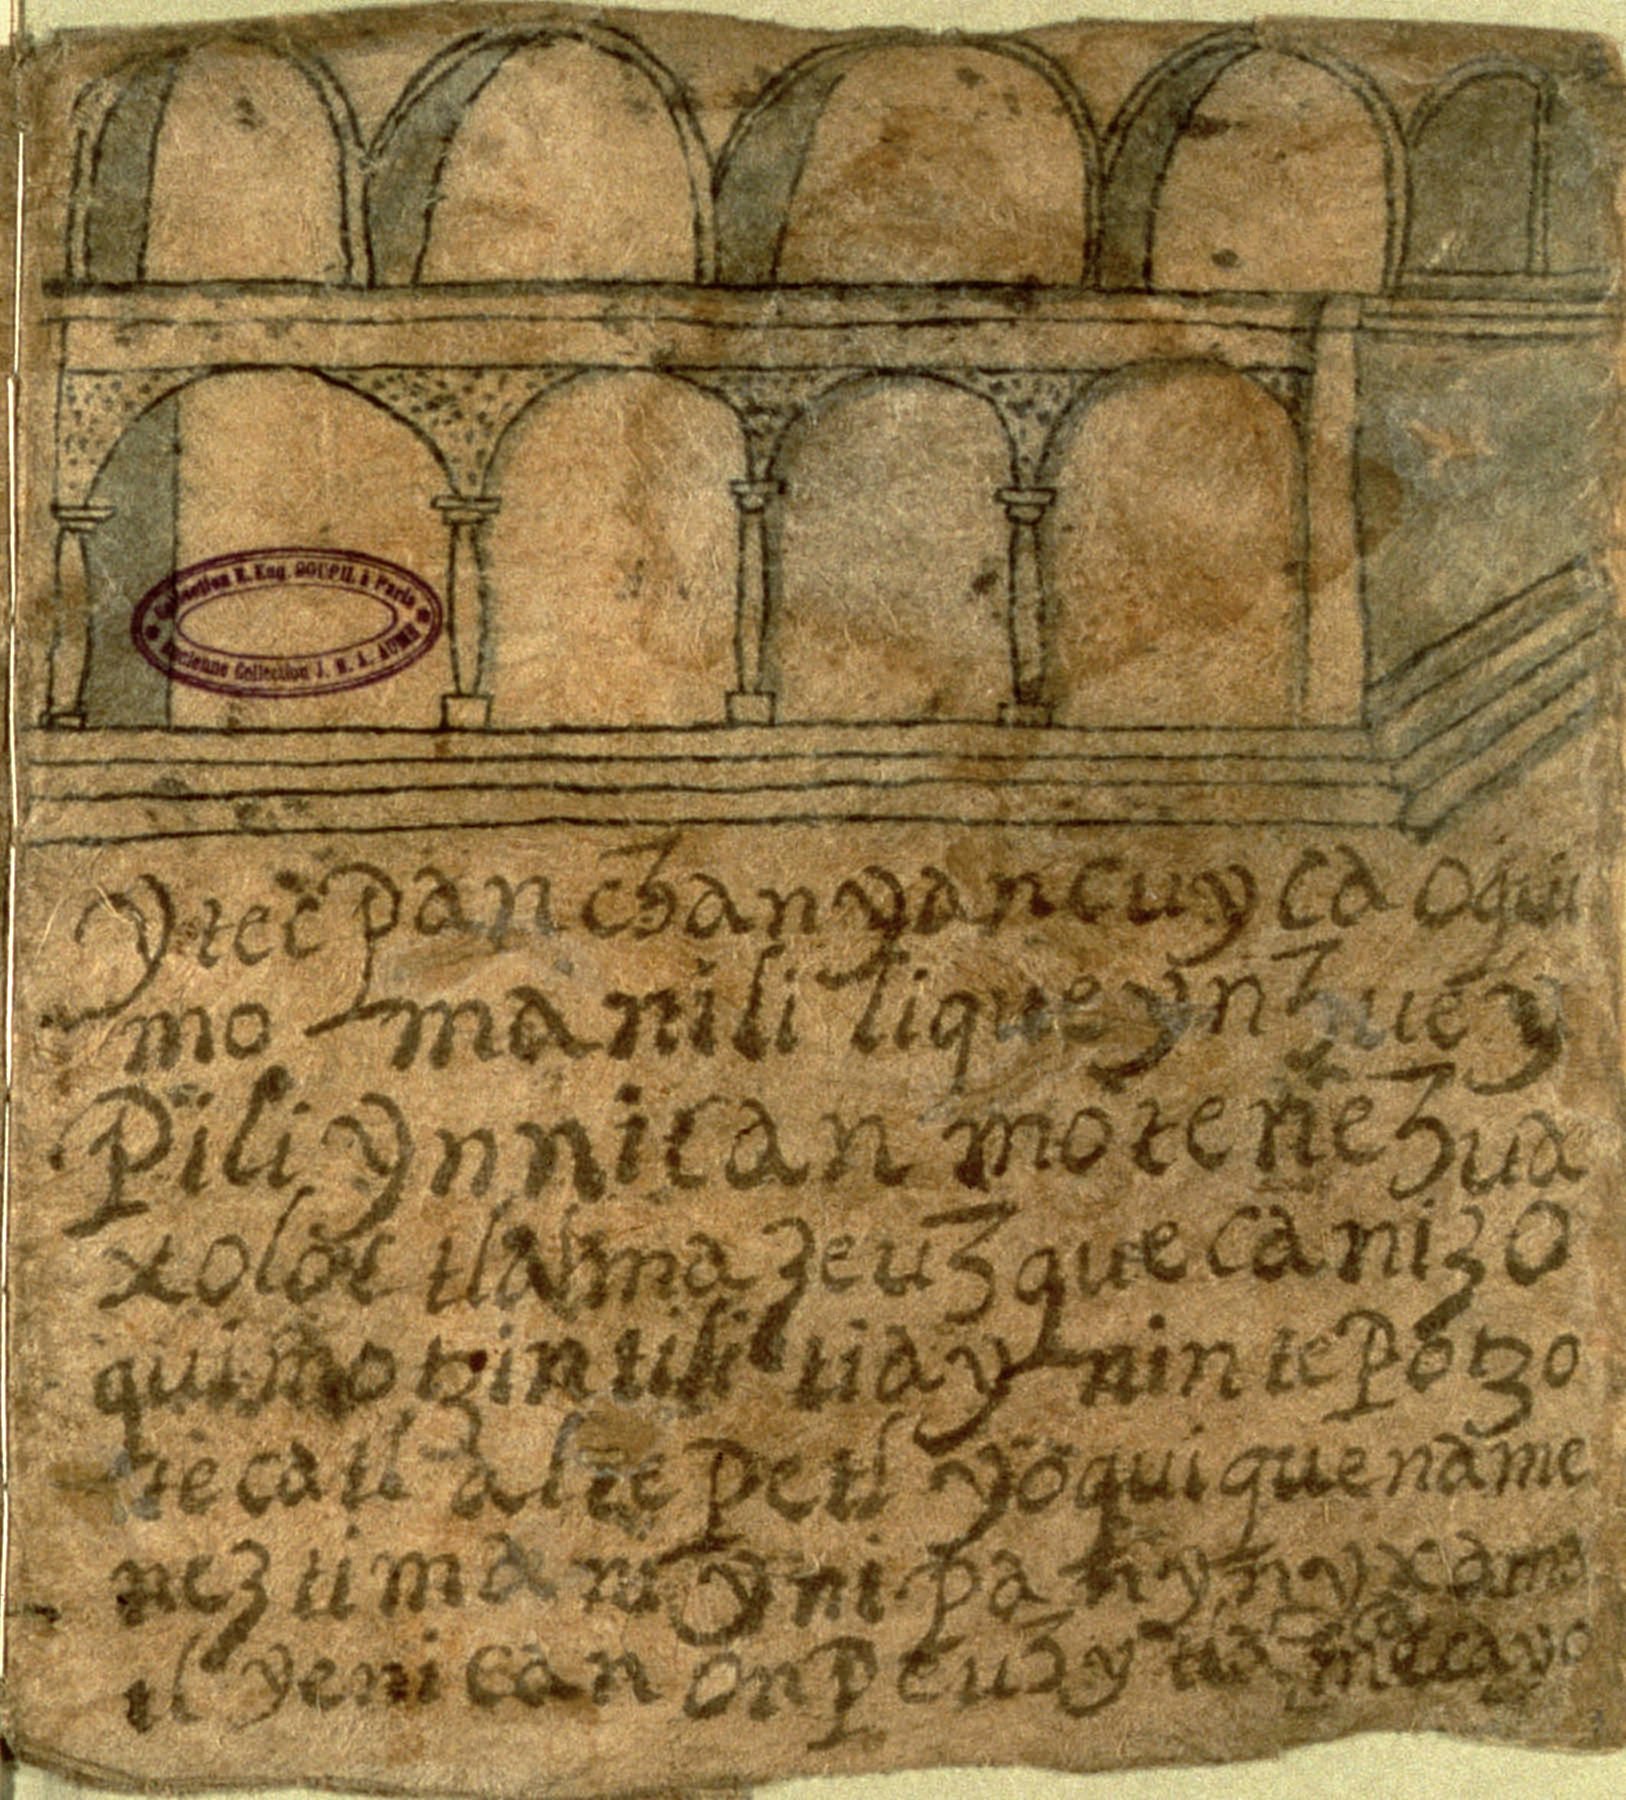 Collection E. Eug. GOUPIL à Paris
Ancienne Collection J. M. A. AUBIN
ytecpan chanyancuyca oqui
mo manili lique yn huey
Pili ynnican motenehua
xolotl
quimotzintili tiay nin tepotzo
tecatl altepetl yoqui quename
neztimani ynipan yn yxama
tl yenican onpeuhy tlamecayo